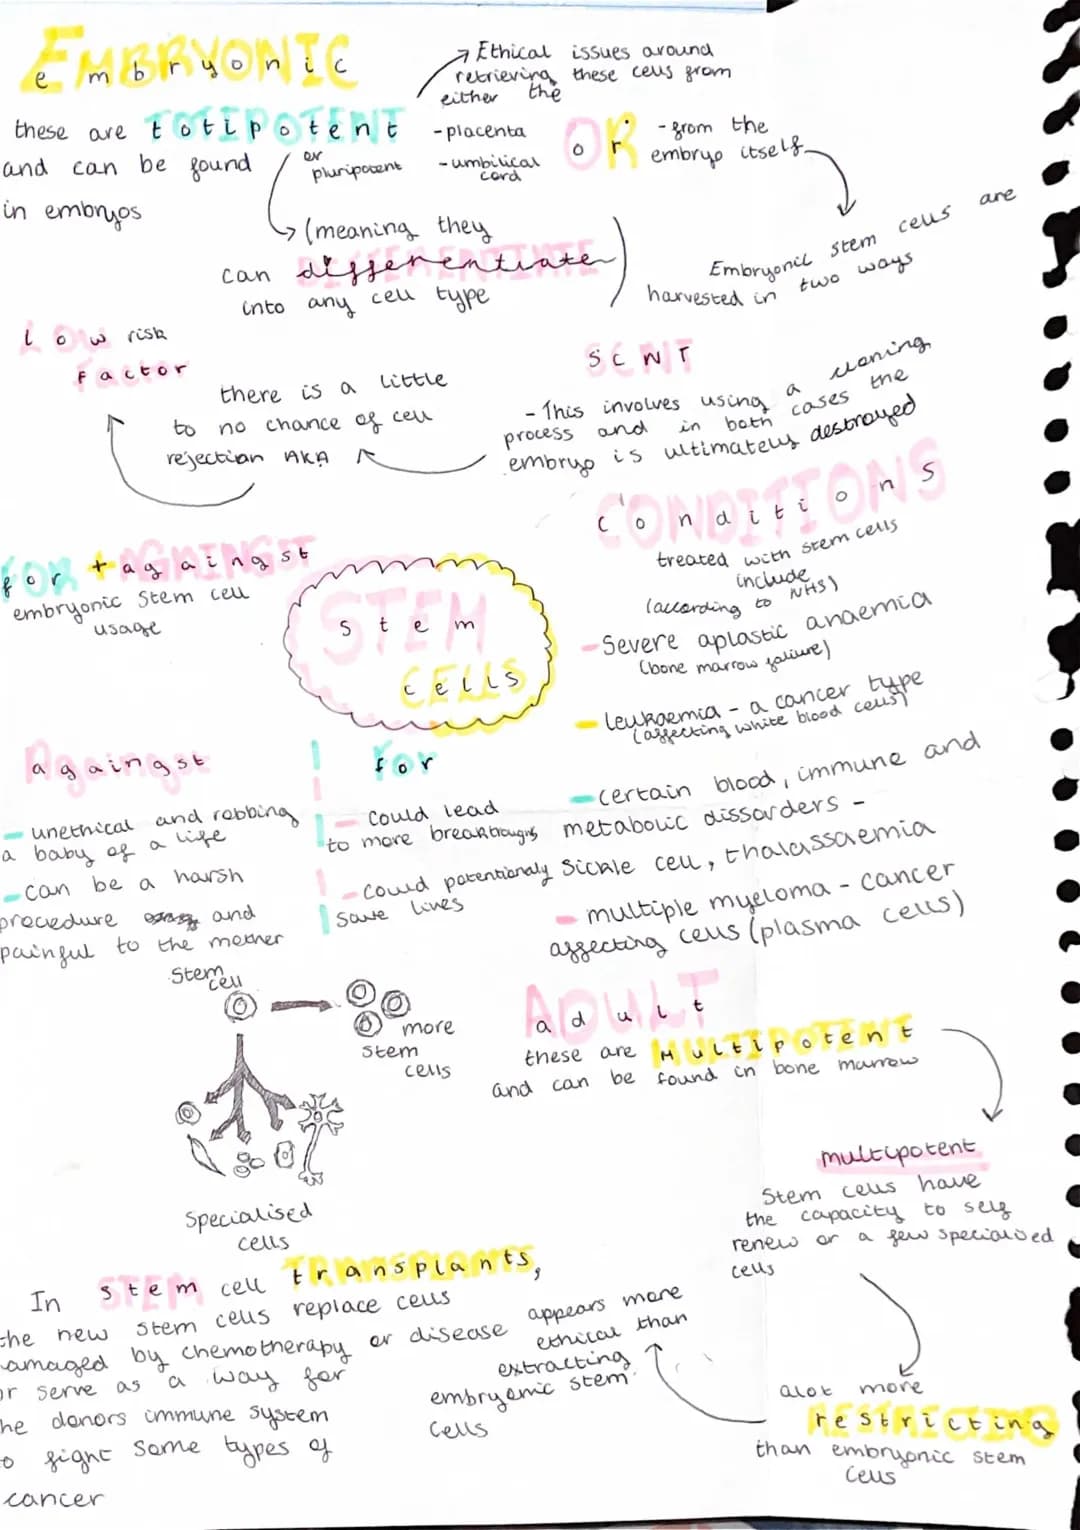 EMBRYONIC
embryonic
these are totipotent
or
pluripotent
and can be found
in embryos
(meaning they
can differentiate)
into any cell type
Ethical issues around
retrieving these cells from
either the
-placenta
-umbilical
cord
OR
or
-from the
embryo itself
Embryonic stem cells are
harvested in two ways
Low risk
Factor
there is a little
to no chance of cell
rejection AKA
SCNT
- This involves using a cloning
process and in both cases the
embryo is ultimately destroyed
CONDITIONS
conditions
treated with stem cells
include
(according to NHS)
-Severe aplastic anaemia
(bone marrow failiure)
- leukaemia - a cancer type
(affecting white blood cells)
-certain blood, immune and
metabolic dissorders -
Sickle cell, thalassaemia
- multiple myeloma - cancer
affecting cells (plasma cells)
FOR + AGAINGST
for + againgst
embryonic Stem cell
usage
STEM
stem
CELLS
cells
Againgst
againgst
- unethical and robbing
a baby of a life
-can be a harsh
precedure and
painful to the mother
For
for
- could lead
to more breakthroughs
-could potentionaly
save lives
Stem
cell
more
stem
cells
Specialised
cells
ADULT
adult
these are MULTIPOTENT
and can be found in bone marrow
multipotent
Stem cells have
the capacity to self
renew or a few specialised
cells
alot more
restricting
than embryonic stem
cells
appears more
ethical than
extracting
embryonic stem
cells
In STEM cell transplants,
the new stem cells replace cells
amaged by chemotherapy or disease
or serve as a way for
he donors immune system
o fight some types of
cancer